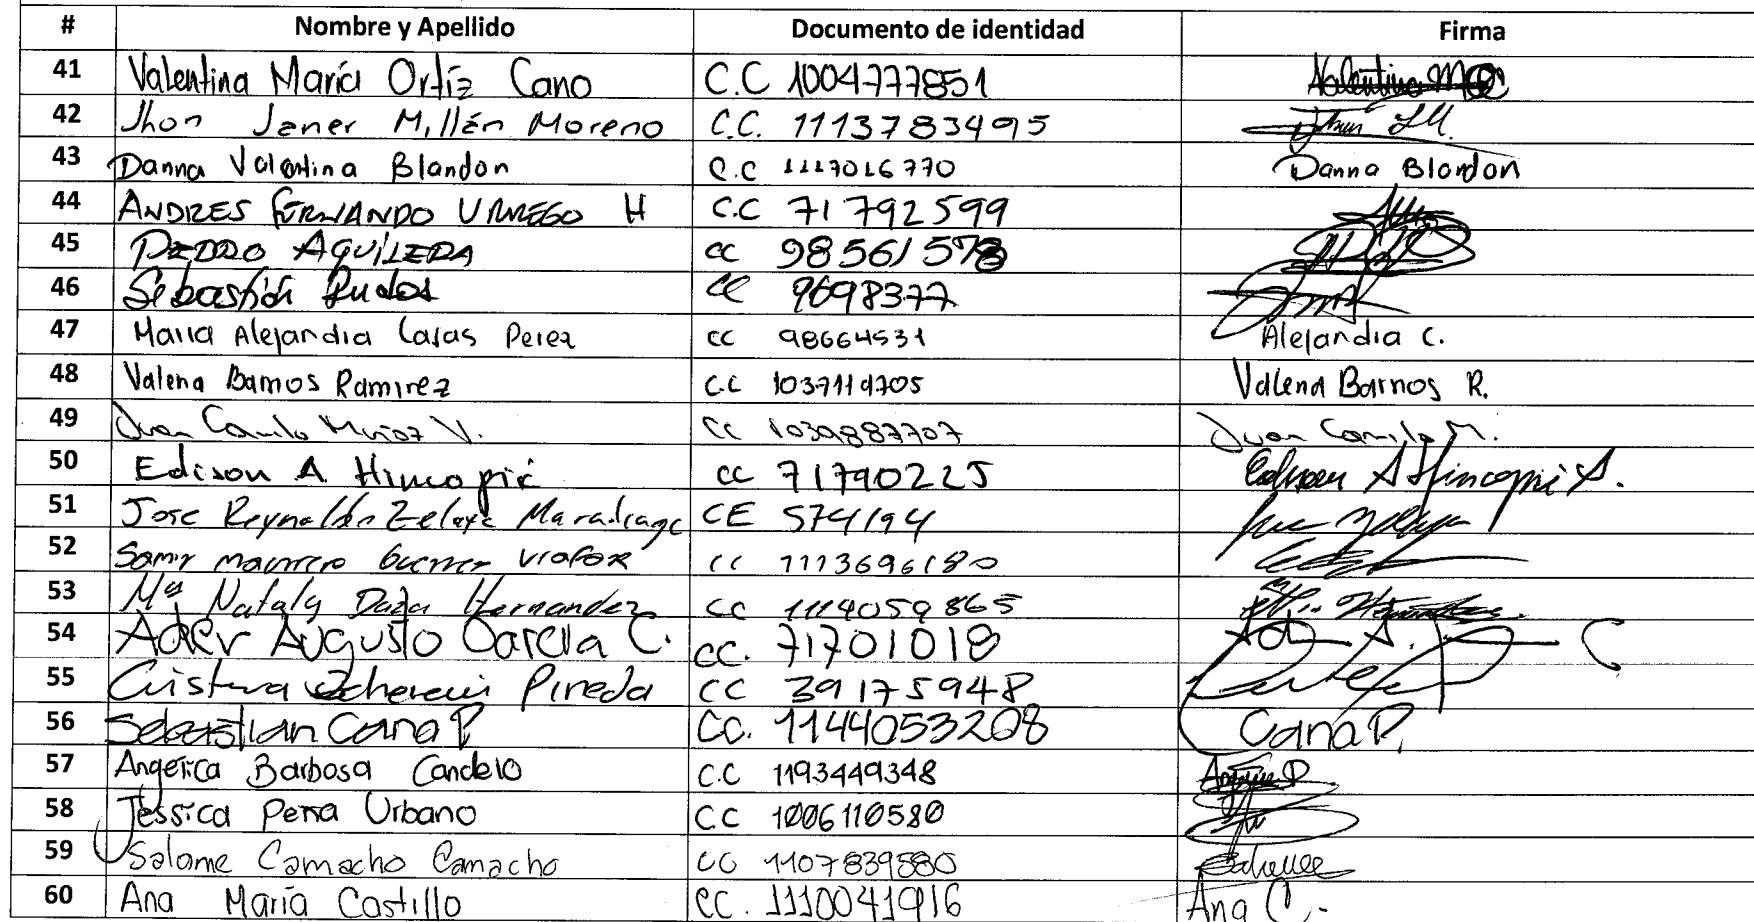 # Nombre y Apellido Documento de identidad Firma
41 Valentina María Ortíz Cano C.C 1004777851 Valentina
42 Jhon Janer Millán Moreno C.C. 1113783495
43 Danna Valentina Blandon C.C 1117016770 Danna Blandon
44 ANDRES FERNANDO URREGO H C.C 71792599
45 PEDRO AGUILERA CC 98561578
46 Sebastián CC 9698377
47 Maria Alejandra Casas Perez CC 98664531 Alejandra C.
48 Valeria Barrios Ramirez C.C 1037119705 Valeria Barrios R.
49 Juan Camilo Muñoz V. CC 1039887707 Juan Camilo M.
50 Edison A Hincapié CC 71790225 Edison A Hincapié A.
51 Jose Reynaldo Zelaya Maradiaga CE 574194 Jose Zelaya
52 Samir Mauricio VIAFOR CC 1113696180
53 Mª Nataly Daza Hernandez CC 1114059865
54 Ader Augusto Garcia C. CC. 71701018
55 Cristina Echeverri Pineda CC 39175948
56 Sebastian Cana P. CC. 1144053208 Cana P.
57 Angerica Barbosa Candelo C.C 1193449348
58 Jessica Peña Urbano C.C 1006110580
59 Salome Camacho Camacho CC 1107839580
60 Ana María Castillo CC. 1110041916 Ana C.